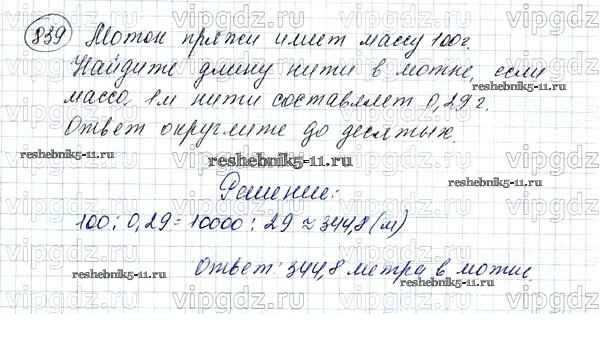 839 Моток пряжи имеет массу 100г.
Найдите длину нити в мотке, если
масса 1м нити составляет 0,29г.
Ответ округлите до десятых.
Решение:
100 : 0,29 = 10000 : 29 ≈ 344,8 (м)
Ответ: 344,8 метра в мотке.
vipgdz.ru
reshebnik5-11.ru